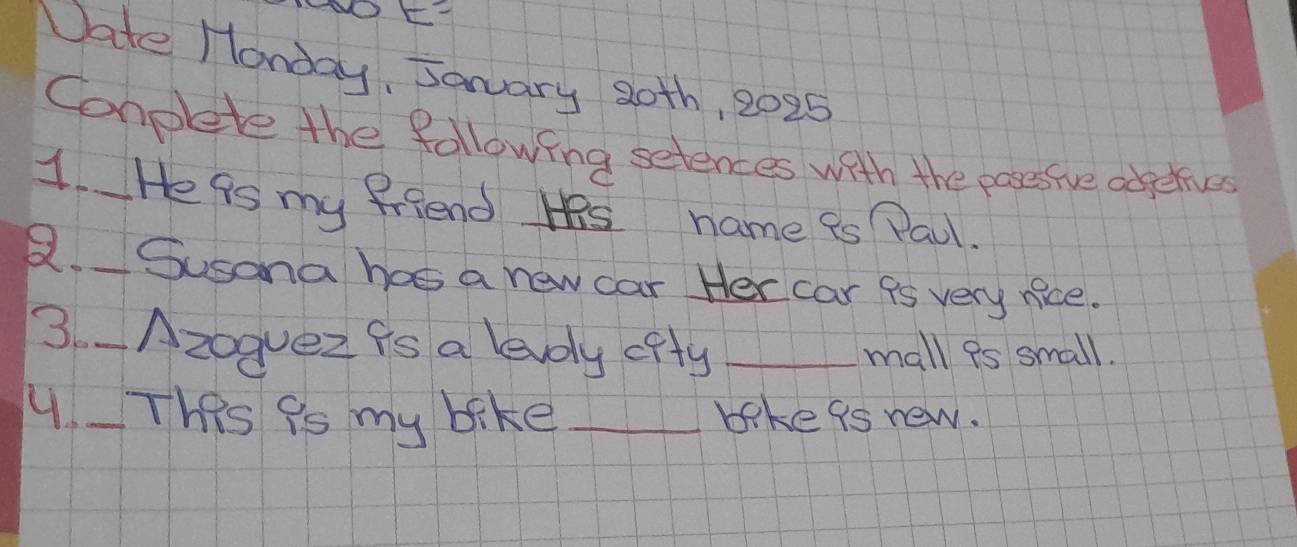 Date Monday, January 20th, 2025
Conplete the following setences with the posesive adgetives
1._ He is my friend His name is Paul.
2._ Susana has a new car Her car is very nice.
3._ Azoguez is a city ____ mall is small.
4._ This is my bike ____ bike is new.